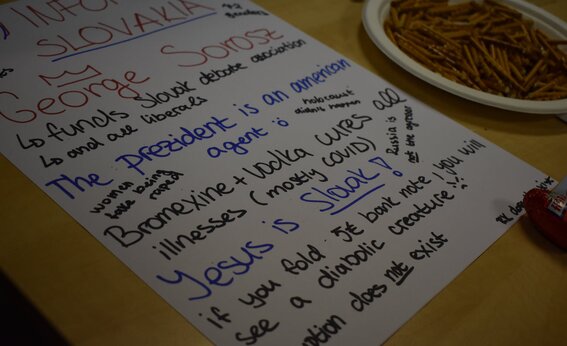 INFO
SLOVAKIA
George Sorosz
↳ funds Slovak debate association
↳ and all liberals
The prezident is an american
agent
holocaust
didn't happen
women
love being
raped
Bromexine + Vodka cures all
illnesses (mostly covid)
Russia is
not the agressor
Yesus is Slovak!
if you fold 5€ bank note, you will
see a diabolic creature!
does not exist